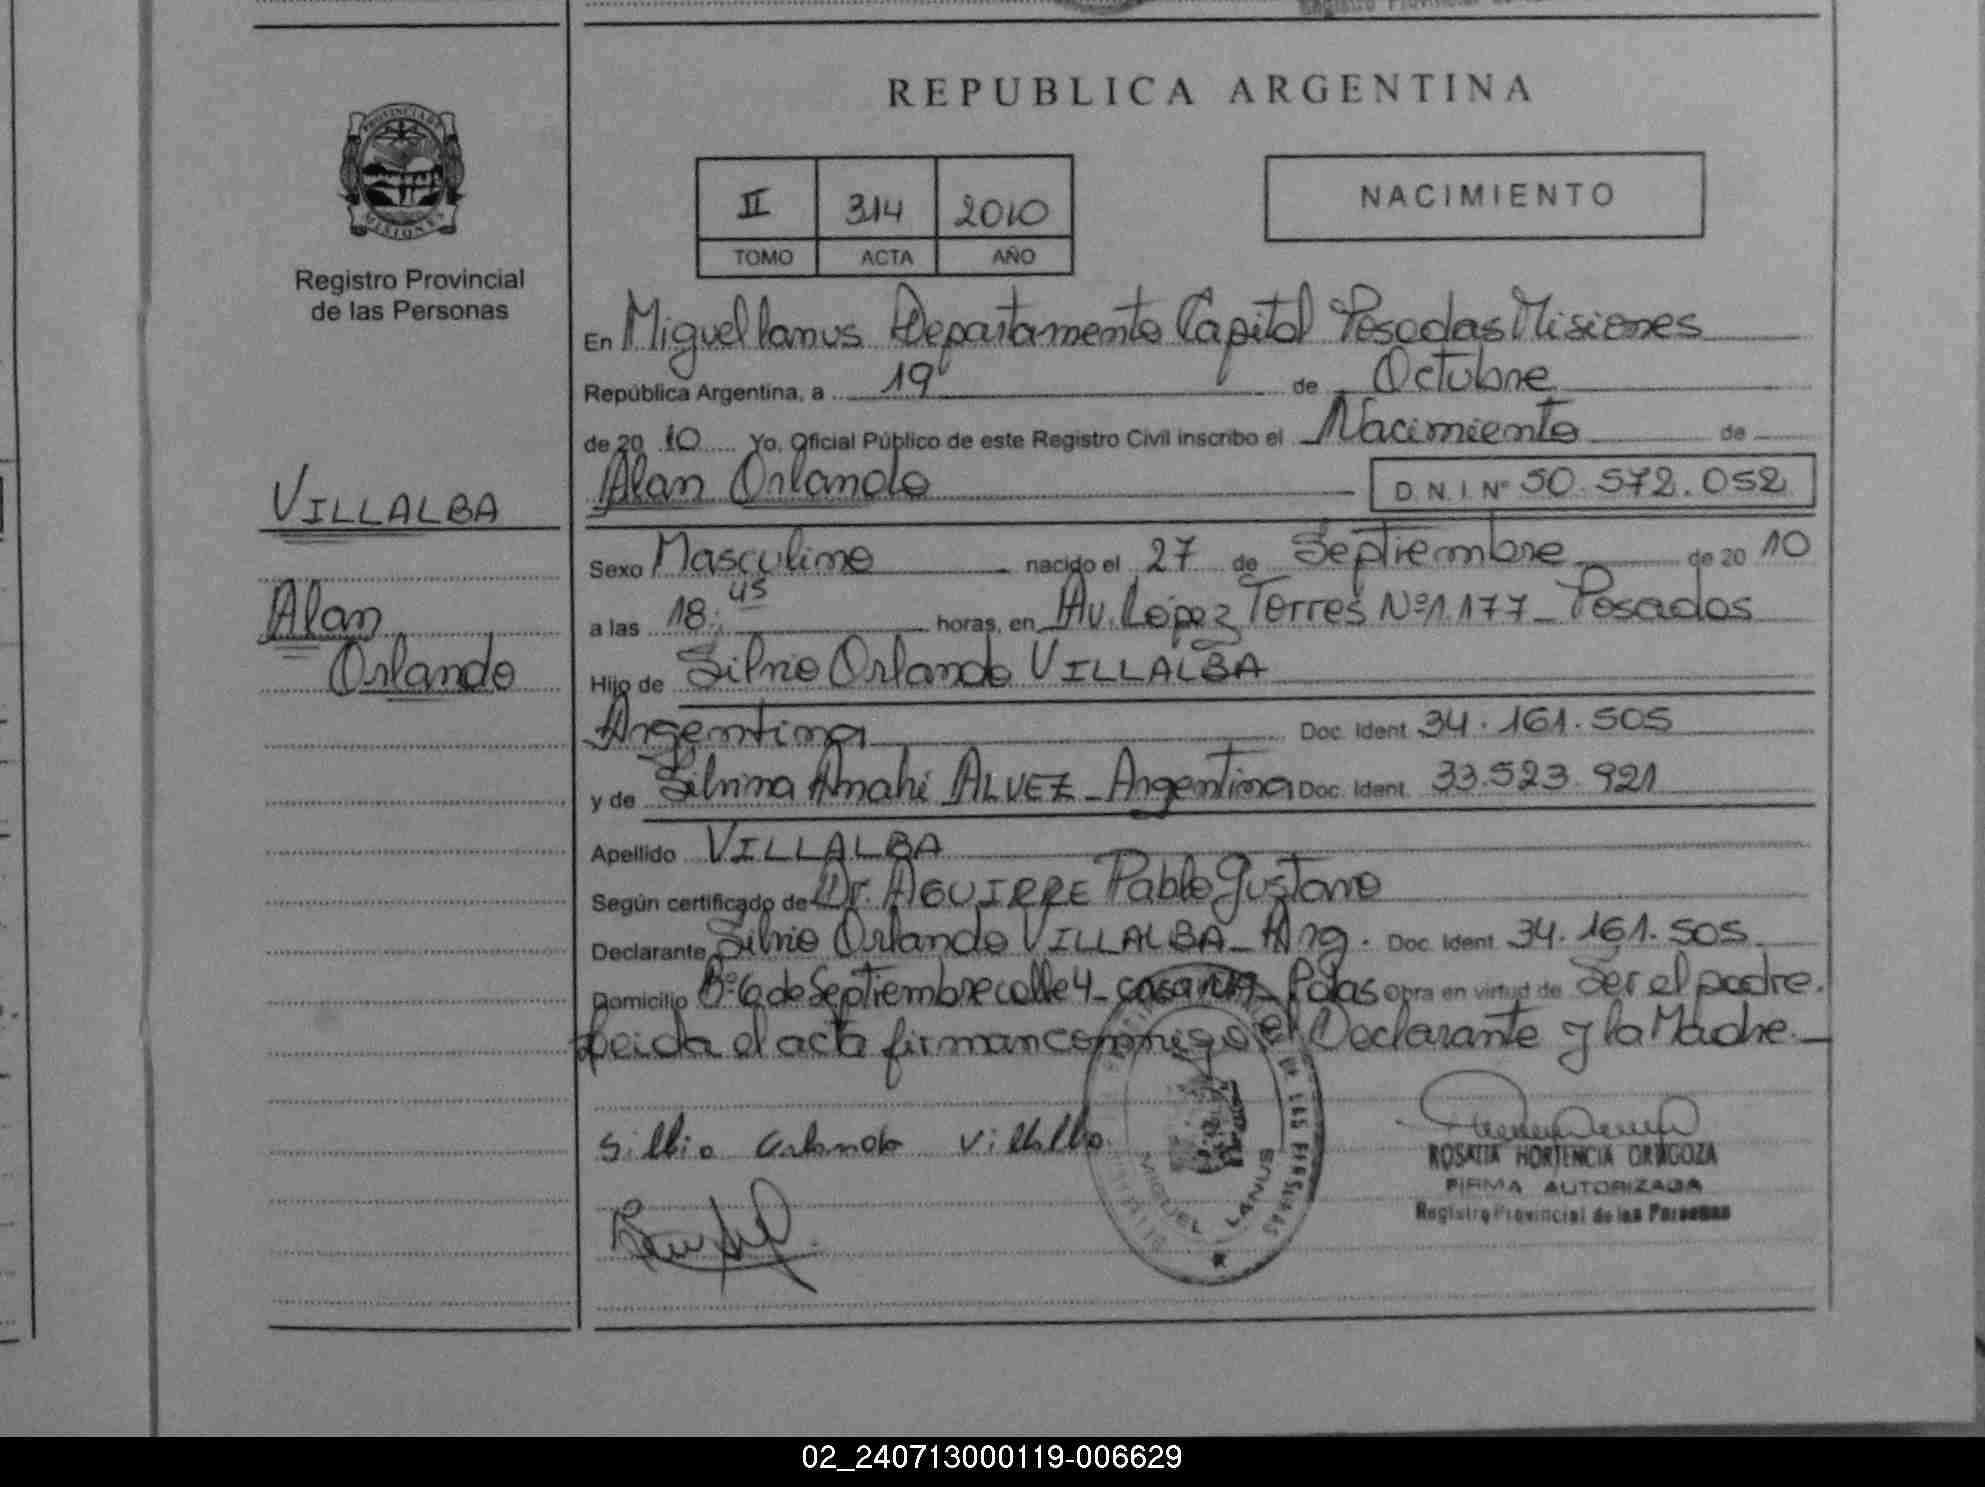 REPUBLICA ARGENTINA
PROVINCIA DE MISIONES
Registro Provincial
de las Personas
II 314 2010
TOMO ACTA AÑO
NACIMIENTO
En Miguel Lanus Departamento Capital Posadas Misiones
República Argentina, a 19 de Octubre
de 20 10 Yo, Oficial Público de este Registro Civil inscribo el Nacimiento de
Alan Orlando D.N.I. Nº 50.572.052
VILLALBA
Alan
Orlando
Sexo Masculino nacido el 27 de Septiembre de 20 10
a las 18:45 horas, en Av. López Torres Nº 1.177 - Posadas
Hijo de Silvio Orlando VILLALBA
Argentina Doc. Ident. 34.161.505
y de Silvina Anahi ALVEZ - Argentina Doc. Ident. 33.523.921
Apellido VILLALBA
Según certificado de Dr. AGUIRRE Pablo Gustavo
Declarante Silvio Orlando VILLALBA - Arg. Doc. Ident. 34.161.505
Domicilio Bº 6 de Septiembre calle 4 - casa Pdas Obra en virtud de Ser el padre.
Leida el acta firman conmigo el Declarante y la Madre.
Silbio Orlando Villalba
DE LAS PERSONAS
MIGUEL LANUS
ROSALIA HORTENCIA ORAGOZA
FIRMA AUTORIZADA
Registro Provincial de las Personas
02_240713000119-006629